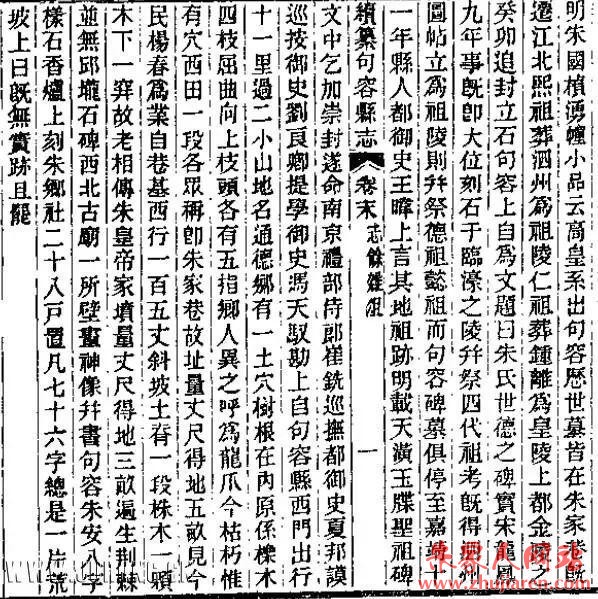 明朱國楨湧幢小品云高皇系出句容歷世墓皆在朱家巷既
遷江北熙祖葬泗州爲祖陵仁祖葬鍾離爲皇陵上都金陵之
癸卯追封立石句容上自爲文題曰朱氏世德之碑實宋龍鳳
九年事既卽大位刻石于臨濠之陵幷祭四代祖考既得泗州
圖帖立爲祖陵則幷祭德祖懿祖而句容碑墓俱停至嘉靖十
一年縣人都御史王暐上言其地祖跡明載天潢玉牒聖祖碑
續纂句容縣志 卷末 志餘雜俎 一
文中乞加崇封遂命南京禮部侍郎崔銑巡撫都御史夏邦謨
巡按御史劉良卿提學御史馮天馭勘上自句容縣西門出行
十一里過二小山地名通德鄉有一土穴樹根在內原係櫟木
四枝屈曲向上枝頭各有五指鄉人異之呼爲龍爪今枯朽惟
有穴西田一段各眾稱卽朱家巷故址量丈尺得地五畝見今
民楊春爲業自巷基西行一百五丈斜坡土脊一段株木一顆
木下一穽故老相傳朱皇帝家墳量丈尺得地三畝遍生荆棘
並無邱壠石碑西北古廟一所壁畫神像幷書句容朱安八字
樣石香爐上刻朱鄉社二十八戸置凡七十六字總是一片荒
坡上曰既無實跡且罷
朱家人网站
www.zhujiaren.com